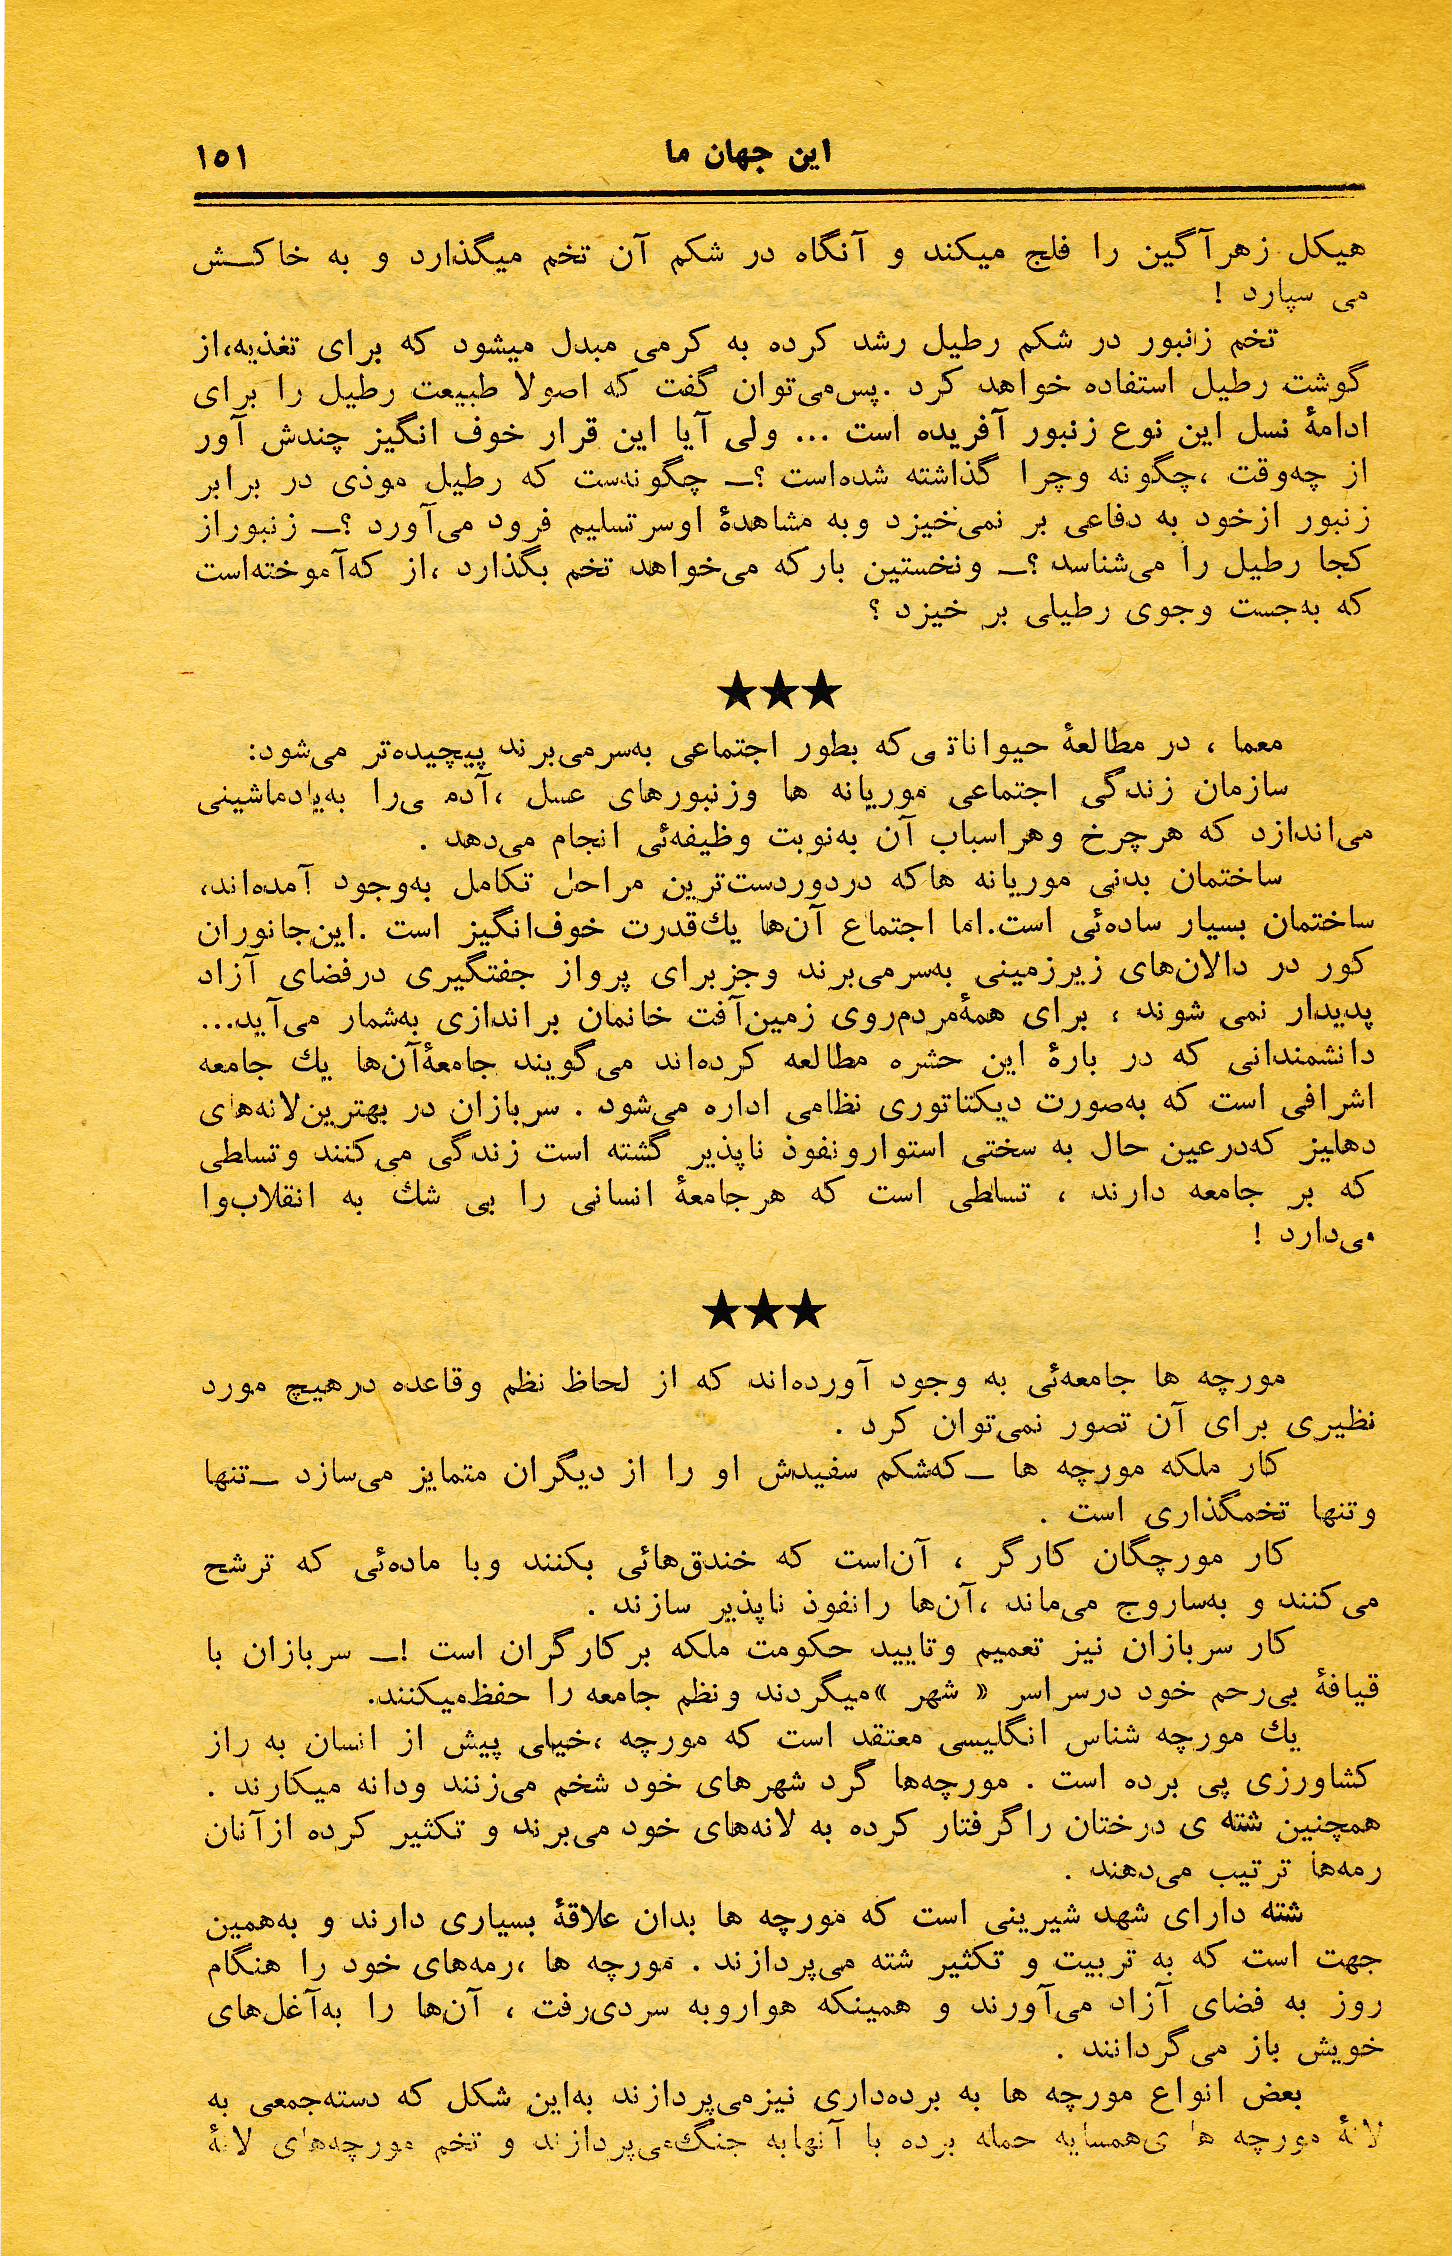 این جهان ما ۱۵۱
هیکل زهرآگین را فلج میکند و آنگاه در شکم آن تخم میگذارد و به خاکـش
می سپارد !
تخم زنبور در شکم رطیل رشد کرده به کرمی مبدل میشود که برای تغذیه،از
گوشت رطیل استفاده خواهد کرد .پس‌می‌توان گفت که اصولا طبیعت رطیل را برای
ادامهٔ نسل این نوع زنبور آفریده است ... ولی آیا این قرار خوف انگیز چندش آور
از چه‌وقت ،چگونه وچرا گذاشته شده‌است ؟ـ چگونه‌ست که رطیل موذی در برابر
زنبور ازخود به دفاعی بر نمی‌خیزد وبه مشاهدهٔ اوسر تسلیم فرود می‌آورد ؟ـ زنبوراز
کجا رطیل را می‌شناسد ؟ـ ونخستین بارکه می‌خواهد تخم بگذارد ،از که‌آموخته‌است
که به‌جست وجوی رطیلی بر خیزد ؟
★★★
معما ، در مطالعهٔ حیواناتی‌که بطور اجتماعی به‌سرمی‌برند پیچیده‌تر می‌شود:
سازمان زندگی اجتماعی موریانه ها وزنبورهای عسل ،آدمی‌را به‌یادماشینی
می‌اندازد که هرچرخ وهراسباب آن به‌نوبت وظیفه‌ئی انجام می‌دهد .
ساختمان بدنی موریانه هاکه دردوردست‌ترین مراحل تکامل به‌وجود آمده‌اند،
ساختمان بسیار ساده‌ئی است.اما اجتماع آن‌ها یك‌قدرت خوف‌انگیز است .این‌جانوران
کور در دالان‌های زیرزمینی به‌سرمی‌برند وجزبرای پرواز جفتگیری درفضای آزاد
پدیدار نمی شوند ، برای همهٔمردم‌روی زمین‌آفت خانمان براندازی به‌شمار می‌آید...
دانشمندانی که در بارهٔ این حشره مطالعه کرده‌اند می‌گویند جامعهٔ‌آن‌ها یك جامعه
اشرافی است که به‌صورت دیکتاتوری نظامی اداره می‌شود . سربازان در بهترین‌لانه‌های
دهلیز که‌درعین حال به سختی استوارونفوذ ناپذیر گشته است زندگی می‌کنند وتسلطی
که بر جامعه دارند ، تسلطی است که هرجامعهٔ انسانی را بی شك به انقلاب‌وا
می‌دارد !
★★★
مورچه ها جامعه‌ئی به وجود آورده‌اند که از لحاظ نظم وقاعده درهیچ مورد
نظیری برای آن تصور نمی‌توان کرد .
کار ملکه مورچه ها ـ‌که‌شکم سفیدش او را از دیگران متمایز می‌سازد ـ‌تنها
وتنها تخمگذاری است .
کار مورچگان کارگر ، آن‌است که خندق‌هائی بکنند وبا ماده‌ئی که ترشح
می‌کنند و به‌ساروج می‌ماند ،آن‌ها رانفوذ ناپذیر سازند .
کار سربازان نیز تعمیم وتایید حکومت ملکه برکارگران است !ـ سربازان با
قیافهٔ بی‌رحم خود درسراسر « شهر »میگردند ونظم جامعه را حفظ‌میکنند.
یك مورچه شناس انگلیسی معتقد است که مورچه ،خیلی پیش از انسان به راز
کشاورزی پی برده است . مورچه‌ها گرد شهرهای خود شخم می‌زنند ودانه میکارند .
همچنین شته ی درختان راگرفتار کرده به لانه‌های خود می‌برند و تکثیر کرده ازآنان
رمه‌ها ترتیب می‌دهند .
شته دارای شهد شیرینی است که مورچه ها بدان علاقهٔ بسیاری دارند و به‌همین
جهت است که به تربیت و تکثیر شته می‌پردازند . مورچه ها ،رمه‌های خود را هنگام
روز به فضای آزاد می‌آورند و همینکه هواروبه سردی‌رفت ، آن‌ها را به‌آغل‌های
خویش باز می‌گردانند .
بعض انواع مورچه ها به برده‌داری نیزمی‌پردازند به‌این شکل که دسته‌جمعی به
لانهٔ مورچه ها ی‌همسایه حمله برده با آنهابه جنگ‌می‌پردازند و تخم مورچه‌های لانهٔ